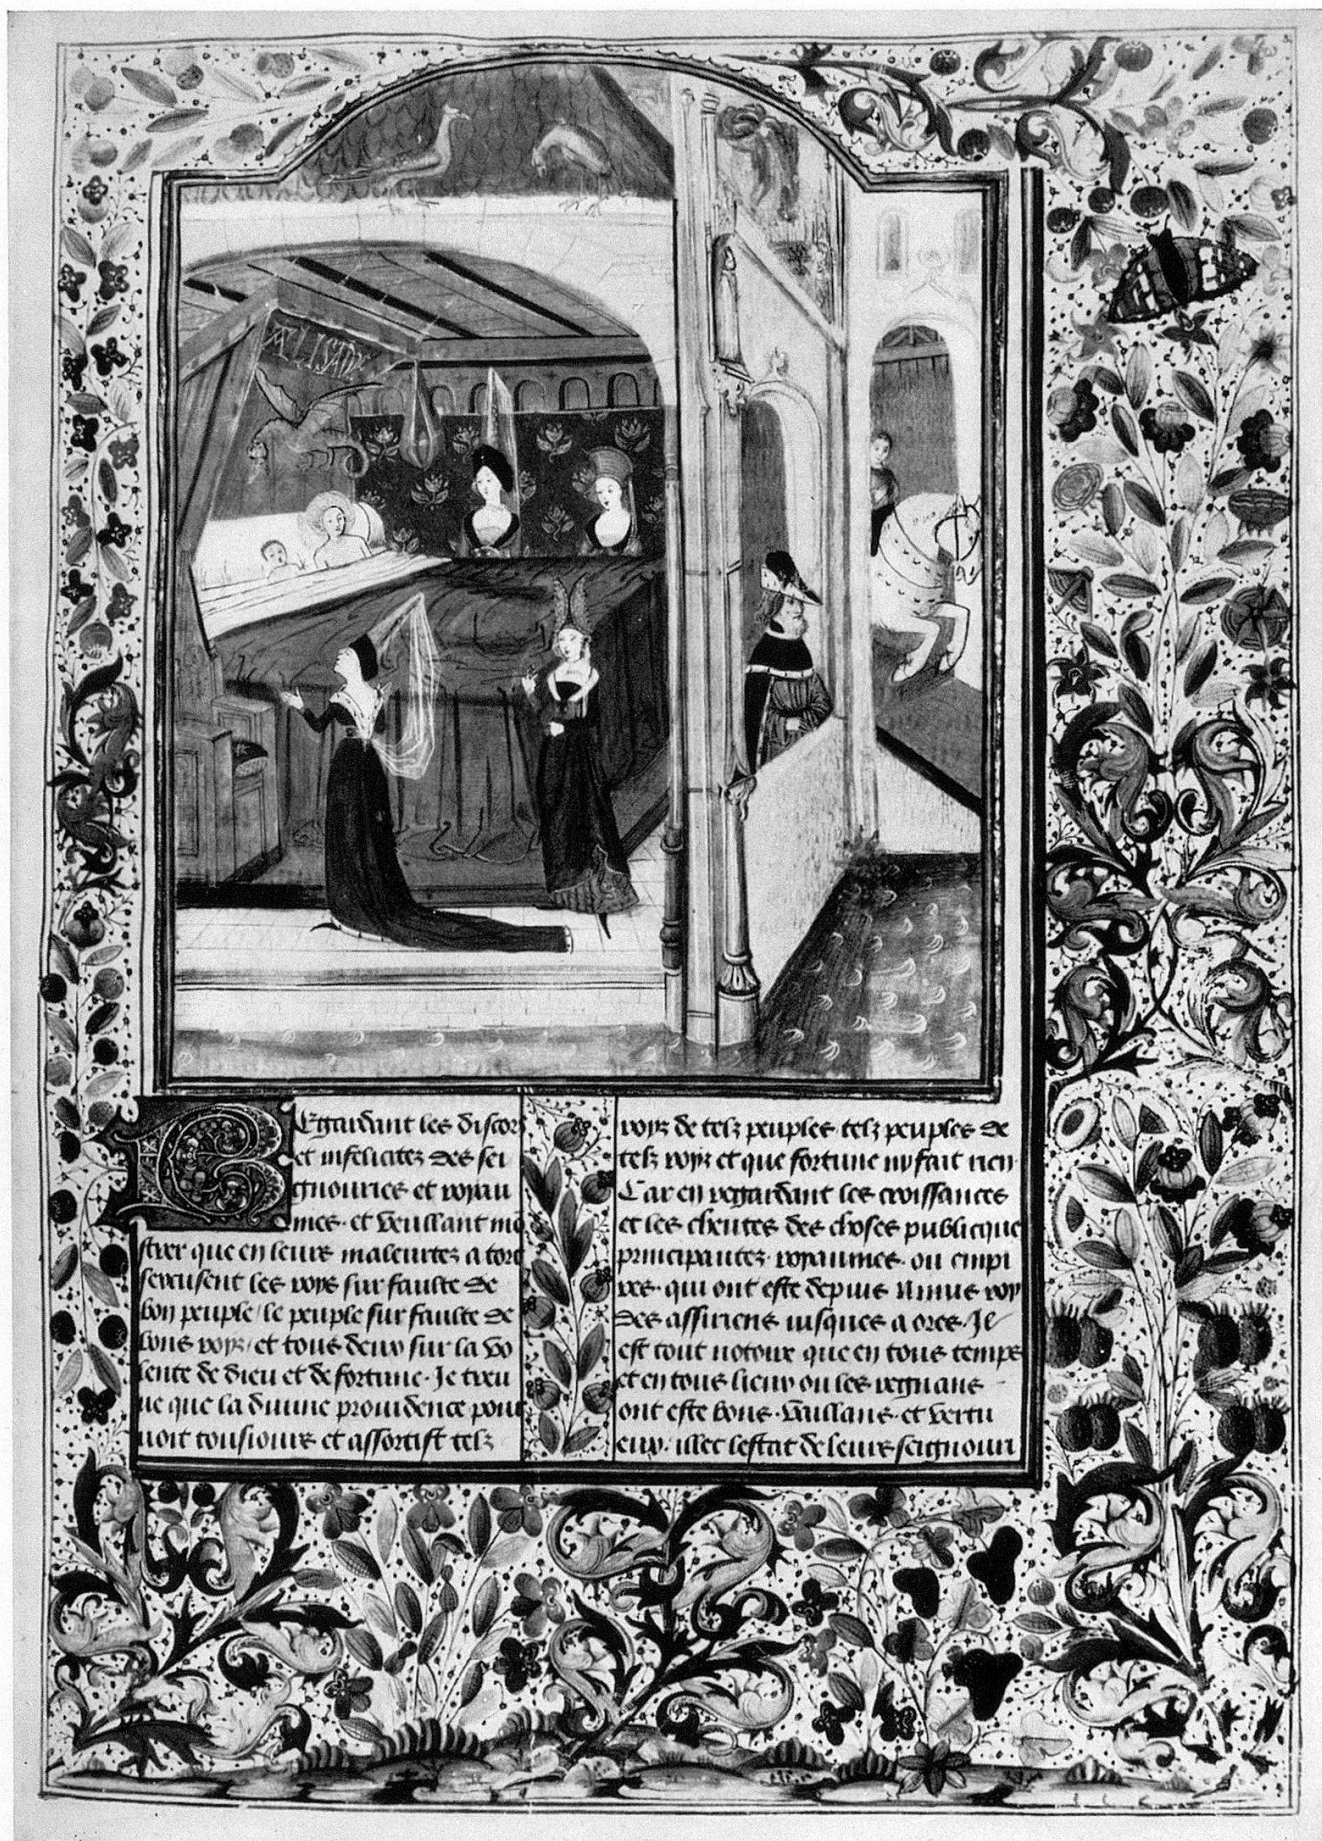 Regardant les discors
et infelicitez des sei
gnouries et royau
mes. et veullant mō
strer que en leurs maleurtez a tort
sexcusent les roys sur faulte de
bon peuple / le peuple sur faulte de
bons roys / et tous deux sur la vo
lente de dieu et de fortune. Je treu
ue que la diuine prouidence pour
uoit tousiours et assortist telz
roys de telz peuples. telz peuples de
telz roys et que fortune ny fait rien.
Car en regardant les croissances
et les cheutes des choses publicque
principautez. royaumes. ou empi
res. qui ont este depuis Ninus roy
des assiriens iusques a ores. Il
est tout notoire que en tous temps
et en tous lieux ou les regnans
ont este bons. vaillans. et vertu
eux. illec lestat de leurs seignouri